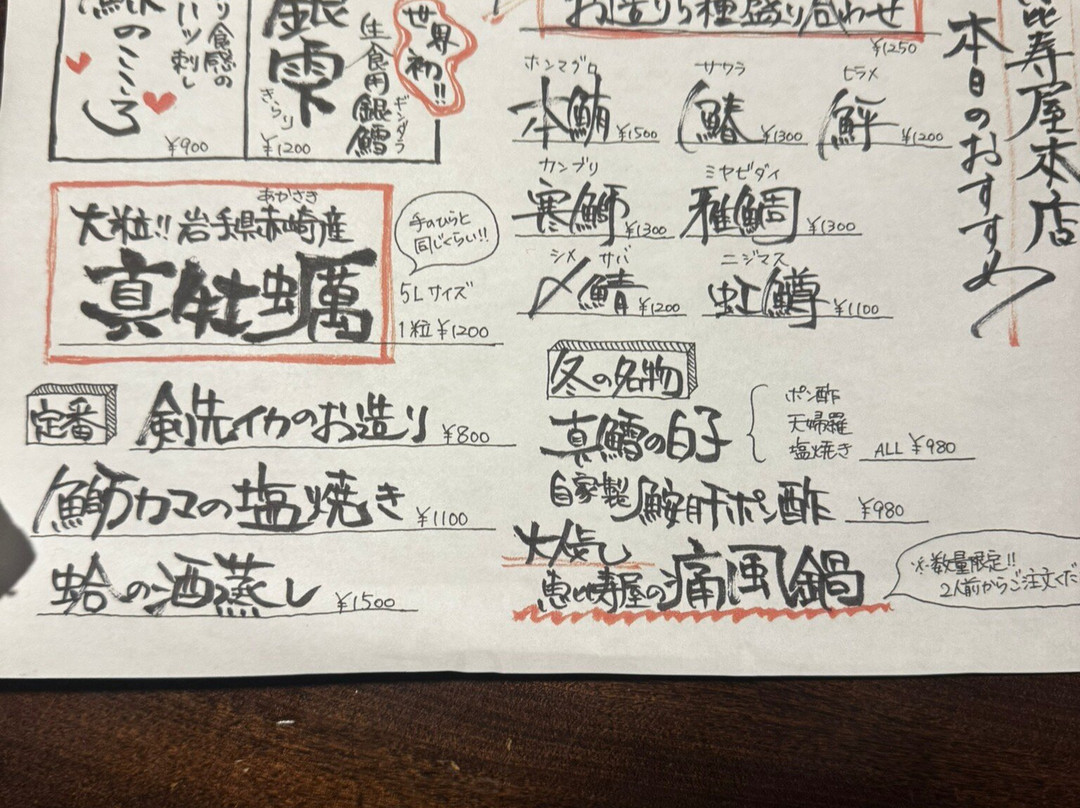 寿屋本店
本日のおすすめ
お造り5種盛り合わせ
¥1250
ホンマグロ
本鮪 ¥1500
サワラ
鰆 ¥1300
ヒラメ
鮃 ¥1200
カンブリ
寒鰤 ¥1300
ミヤビダイ
雅鯛 ¥1300
シメ サバ
〆鯖 ¥1200
ニジマス
虹鱒 ¥1100
冬の名物
真鱈の白子
ポン酢
天婦羅
塩焼き ALL ¥980
自家製 鮟肝ポン酢 ¥980
大人気し
恵比寿屋の痛風鍋
※数量限定!!
2人前からご注文くだ
世界初!!
生食用銀鱈
ギンダラ
銀雫
きらり
¥1200
り食感の
ハツ刺し
のこころ
¥900
あかさき
大粒!! 岩手県赤崎産
真牡蠣
手のひらと
同じくらい!!
5Lサイズ
1粒 ¥1200
定番
剣先イカのお造り ¥800
鰤カマの塩焼き ¥1100
蛤の酒蒸し ¥1500